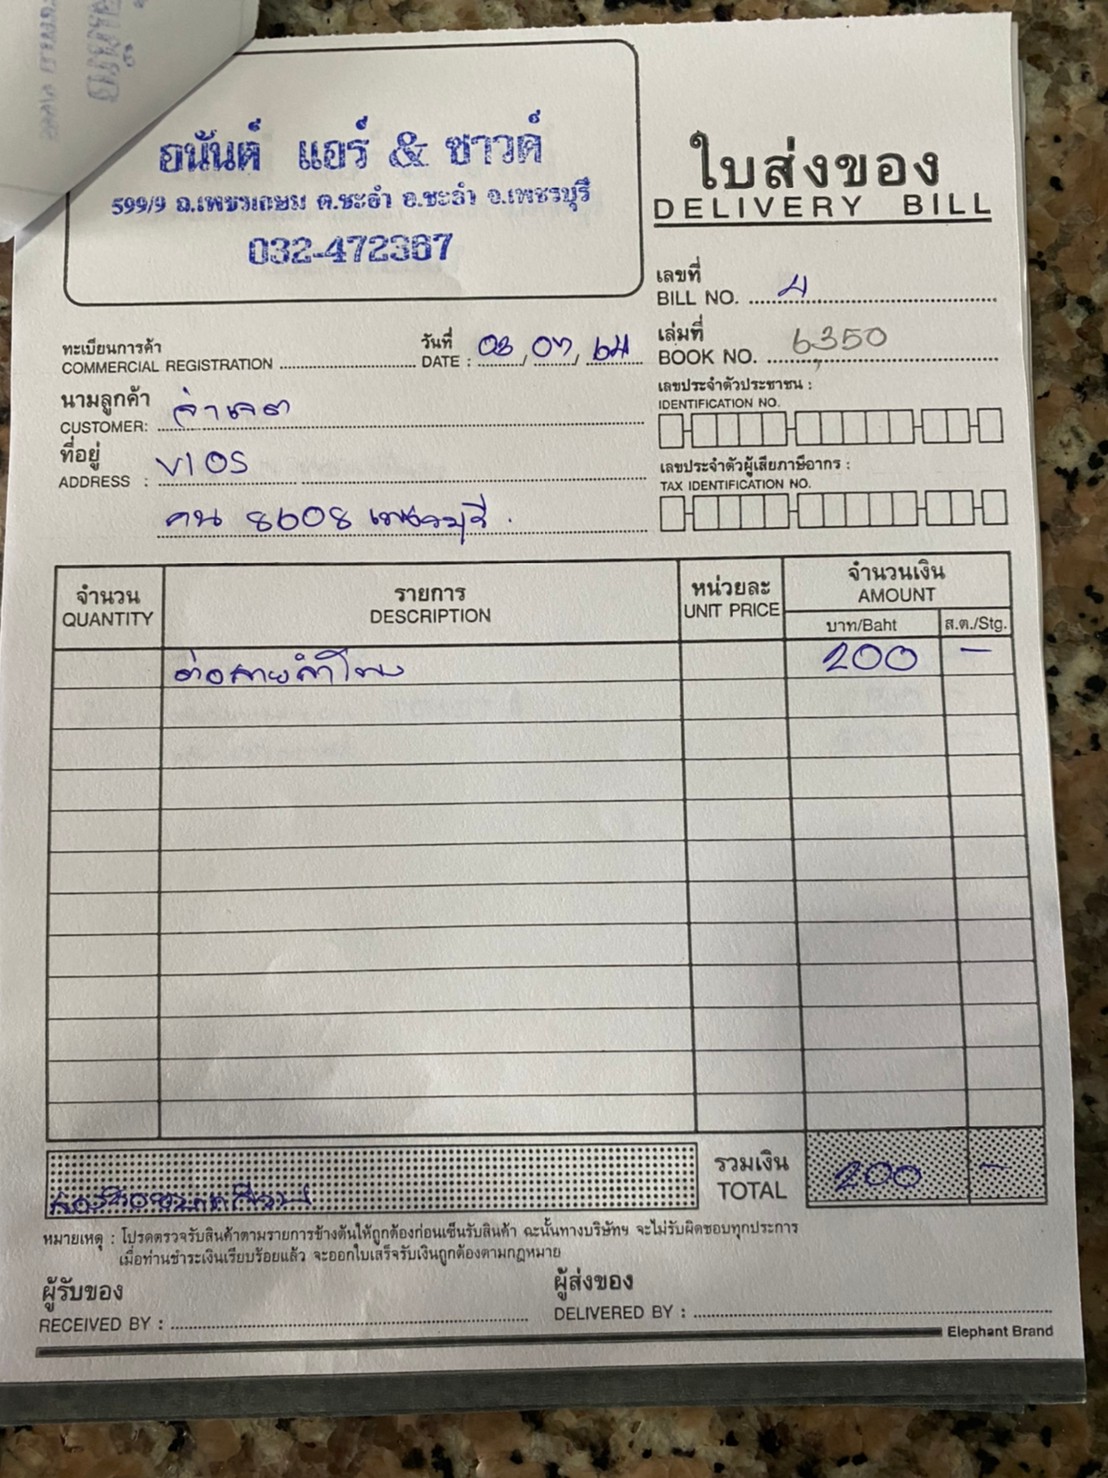 อนันต์ แอร์ & ซาวด์
599/9 ถ.เพชรเกษม ต.ชะอำ อ.ชะอำ จ.เพชรบุรี
032-472367
ใบส่งของ
DELIVERY BILL
เลขที่
BILL NO. 4
ทะเบียนการค้า
COMMERCIAL REGISTRATION
วันที่
DATE : 03/07/64
เล่มที่
BOOK NO. 6350
นามลูกค้า
CUSTOMER:
เลขประจำตัวประชาชน :
IDENTIFICATION NO.
ที่อยู่
ADDRESS : VIOS
เลขประจำตัวผู้เสียภาษีอากร :
TAX IDENTIFICATION NO.
กน 8608 เพชรบุรี
จำนวน
QUANTITY
รายการ
DESCRIPTION
หน่วยละ
UNIT PRICE
จำนวนเงิน
AMOUNT
บาท/Baht
ส.ต./Stg.
ต่อสายลำโพง 200 -
รวมเงิน
TOTAL
200 -
หมายเหตุ : โปรดตรวจรับสินค้าตามรายการข้างต้นให้ถูกต้องก่อนเซ็นรับสินค้า ฉะนั้นทางบริษัทฯ จะไม่รับผิดชอบทุกประการ
เมื่อท่านชำระเงินเรียบร้อยแล้ว จะออกใบเสร็จรับเงินถูกต้องตามกฎหมาย
ผู้รับของ
RECEIVED BY :
ผู้ส่งของ
DELIVERED BY :
Elephant Brand